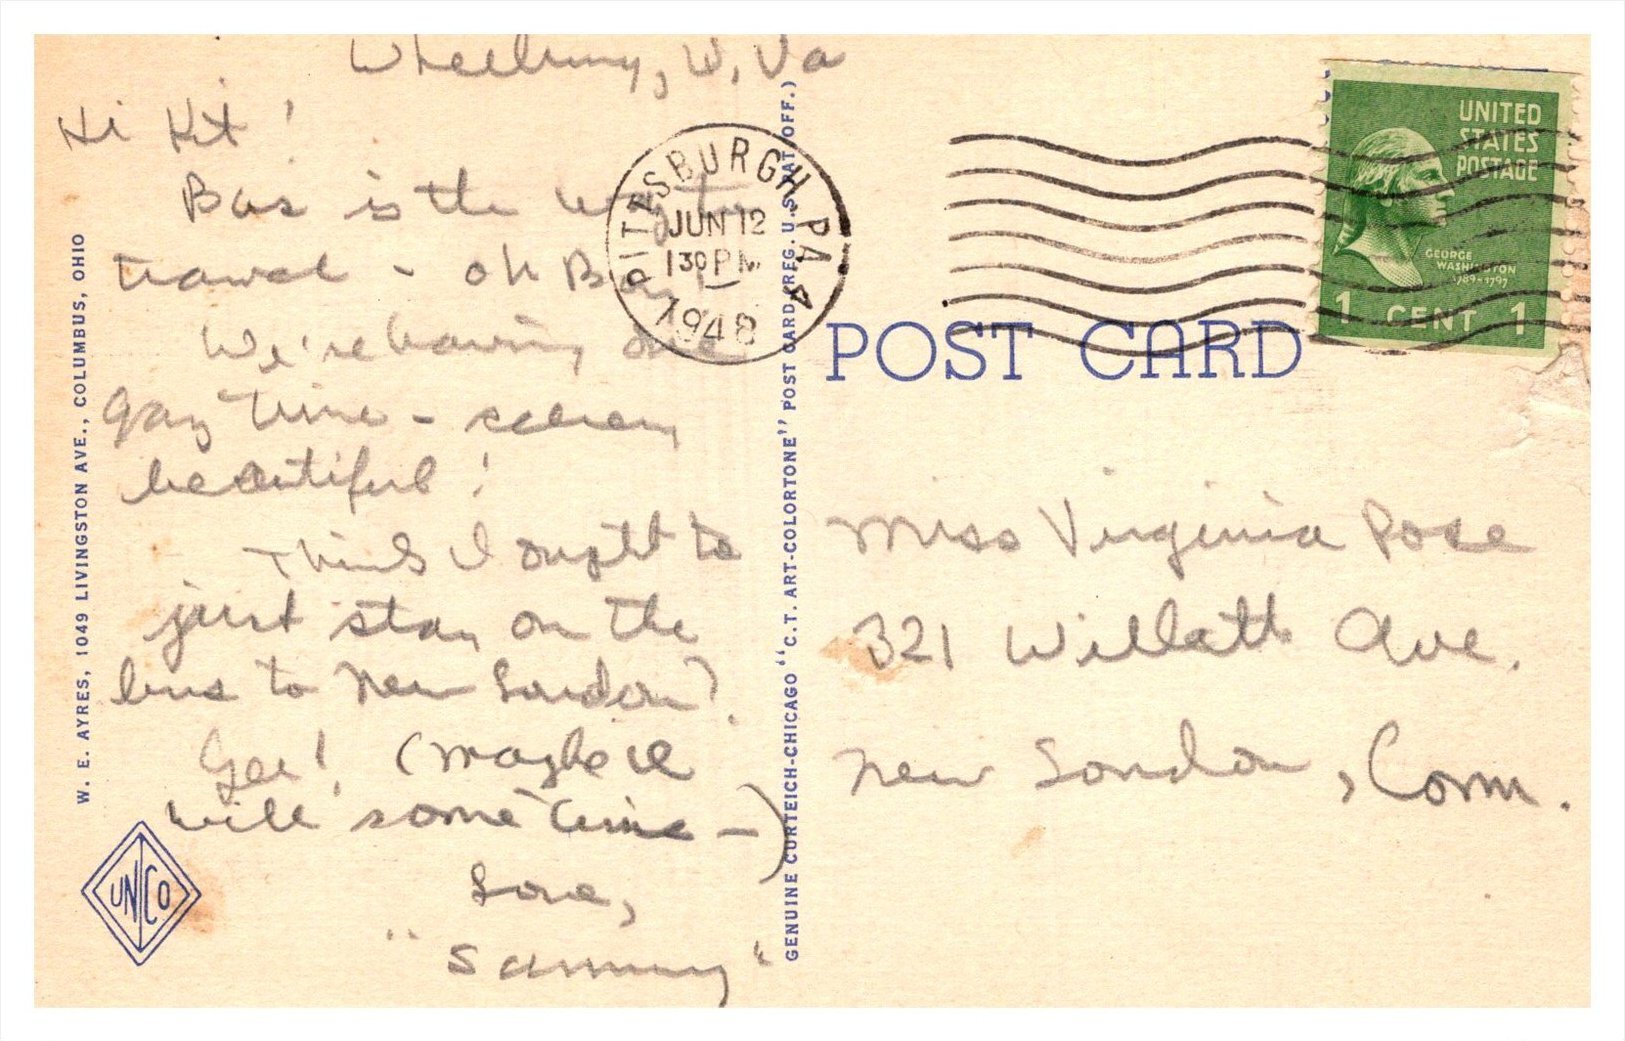 Wheeling, W. Va
Hi Kit!
Bus is the way to
travel - oh Boy
We're having
gay time - scenery
beautiful!
Think I ought to
just stay on the
bus to New London?
Gee! (Maybe
will sometime -)
Love,
"Sammy"
W. E. AYRES, 1049 LIVINGSTON AVE., COLUMBUS, OHIO
UNCO
GENUINE CURTEICH-CHICAGO "C.T. ART-COLORTONE" POST CARD (REG. U.S. PAT. OFF.)
PITTSBURGH, PA. 4
JUN 12
1 30 PM
1948
UNITED
STATES
POSTAGE
GEORGE
WASHINGTON
1789-1797
1 CENT 1
POST CARD
Miss Virginia Rose
321 Willetts Ave.
New London, Conn.